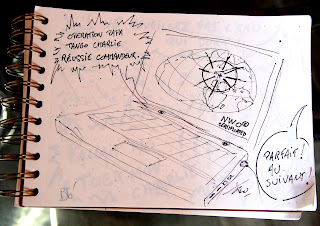 OPERATION PAPA
TANGO CHARLIE
RÉUSSIE COMMANDEUR.
NWO®
PARFAIT!
AU
SUIVANT!